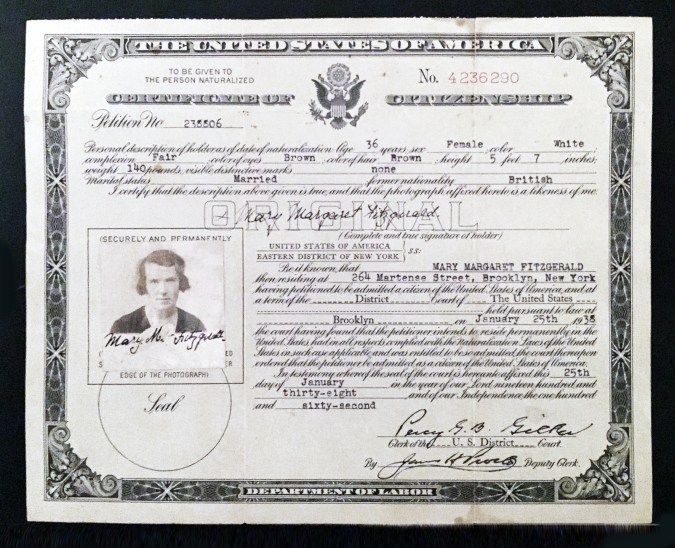 THE UNITED STATES OF AMERICA
TO BE GIVEN TO
THE PERSON NATURALIZED
No. 4236290
CERTIFICATE OF CITIZENSHIP
Petition No. 235506
Personal description of holder as of date of naturalization: Age 36 years; sex Female; color White;
complexion Fair; color of eyes Brown; color of hair Brown; height 5 feet 7 inches;
weight 140 pounds; visible distinctive marks none
Marital status Married former nationality British
I certify that the description above given is true, and that the photograph affixed hereto is a likeness of me.
ORIGINAL
Mary Margaret Fitzgerald.
(Complete and true signature of holder)
(SECURELY AND PERMANENTLY
Mary M. Fitzgerald
EDGE OF THE PHOTOGRAPH)
Seal
UNITED STATES OF AMERICA
EASTERN DISTRICT OF NEW YORK
ss:
Be it known, that MARY MARGARET FITZGERALD
then residing at 264 Martense Street, Brooklyn, New York
having petitioned to be admitted a citizen of the United States of America, and at
a term of the District Court of The United States
held pursuant to law at
Brooklyn on January 25th 1938
the court having found that the petitioner intends to reside permanently in the
United States, had in all respects complied with the Naturalization Laws of the United
States in such case applicable, and was entitled to be so admitted, the court thereupon
ordered that the petitioner be admitted as a citizen of the United States of America.
In testimony whereof the seal of the court is hereunto affixed this 25th
day of January in the year of our Lord nineteen hundred and
thirty-eight and of our Independence the one hundred
and sixty-second
Percy G. B. Gilkes
Clerk of the U. S. District Court.
By Deputy Clerk.
DEPARTMENT OF LABOR